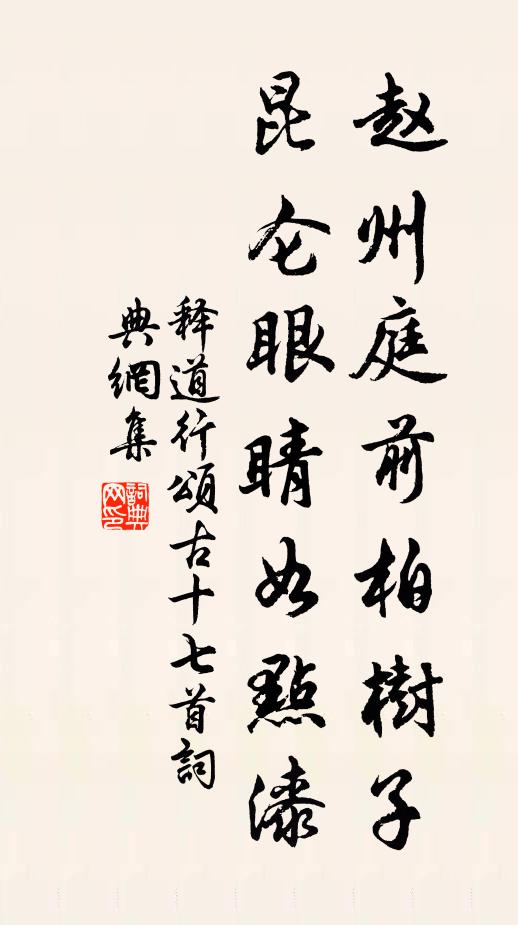 赵州庭前柏樹子
昆仑眼睛如點漆
释道行頌古十七首詞
典網集
詞典网印